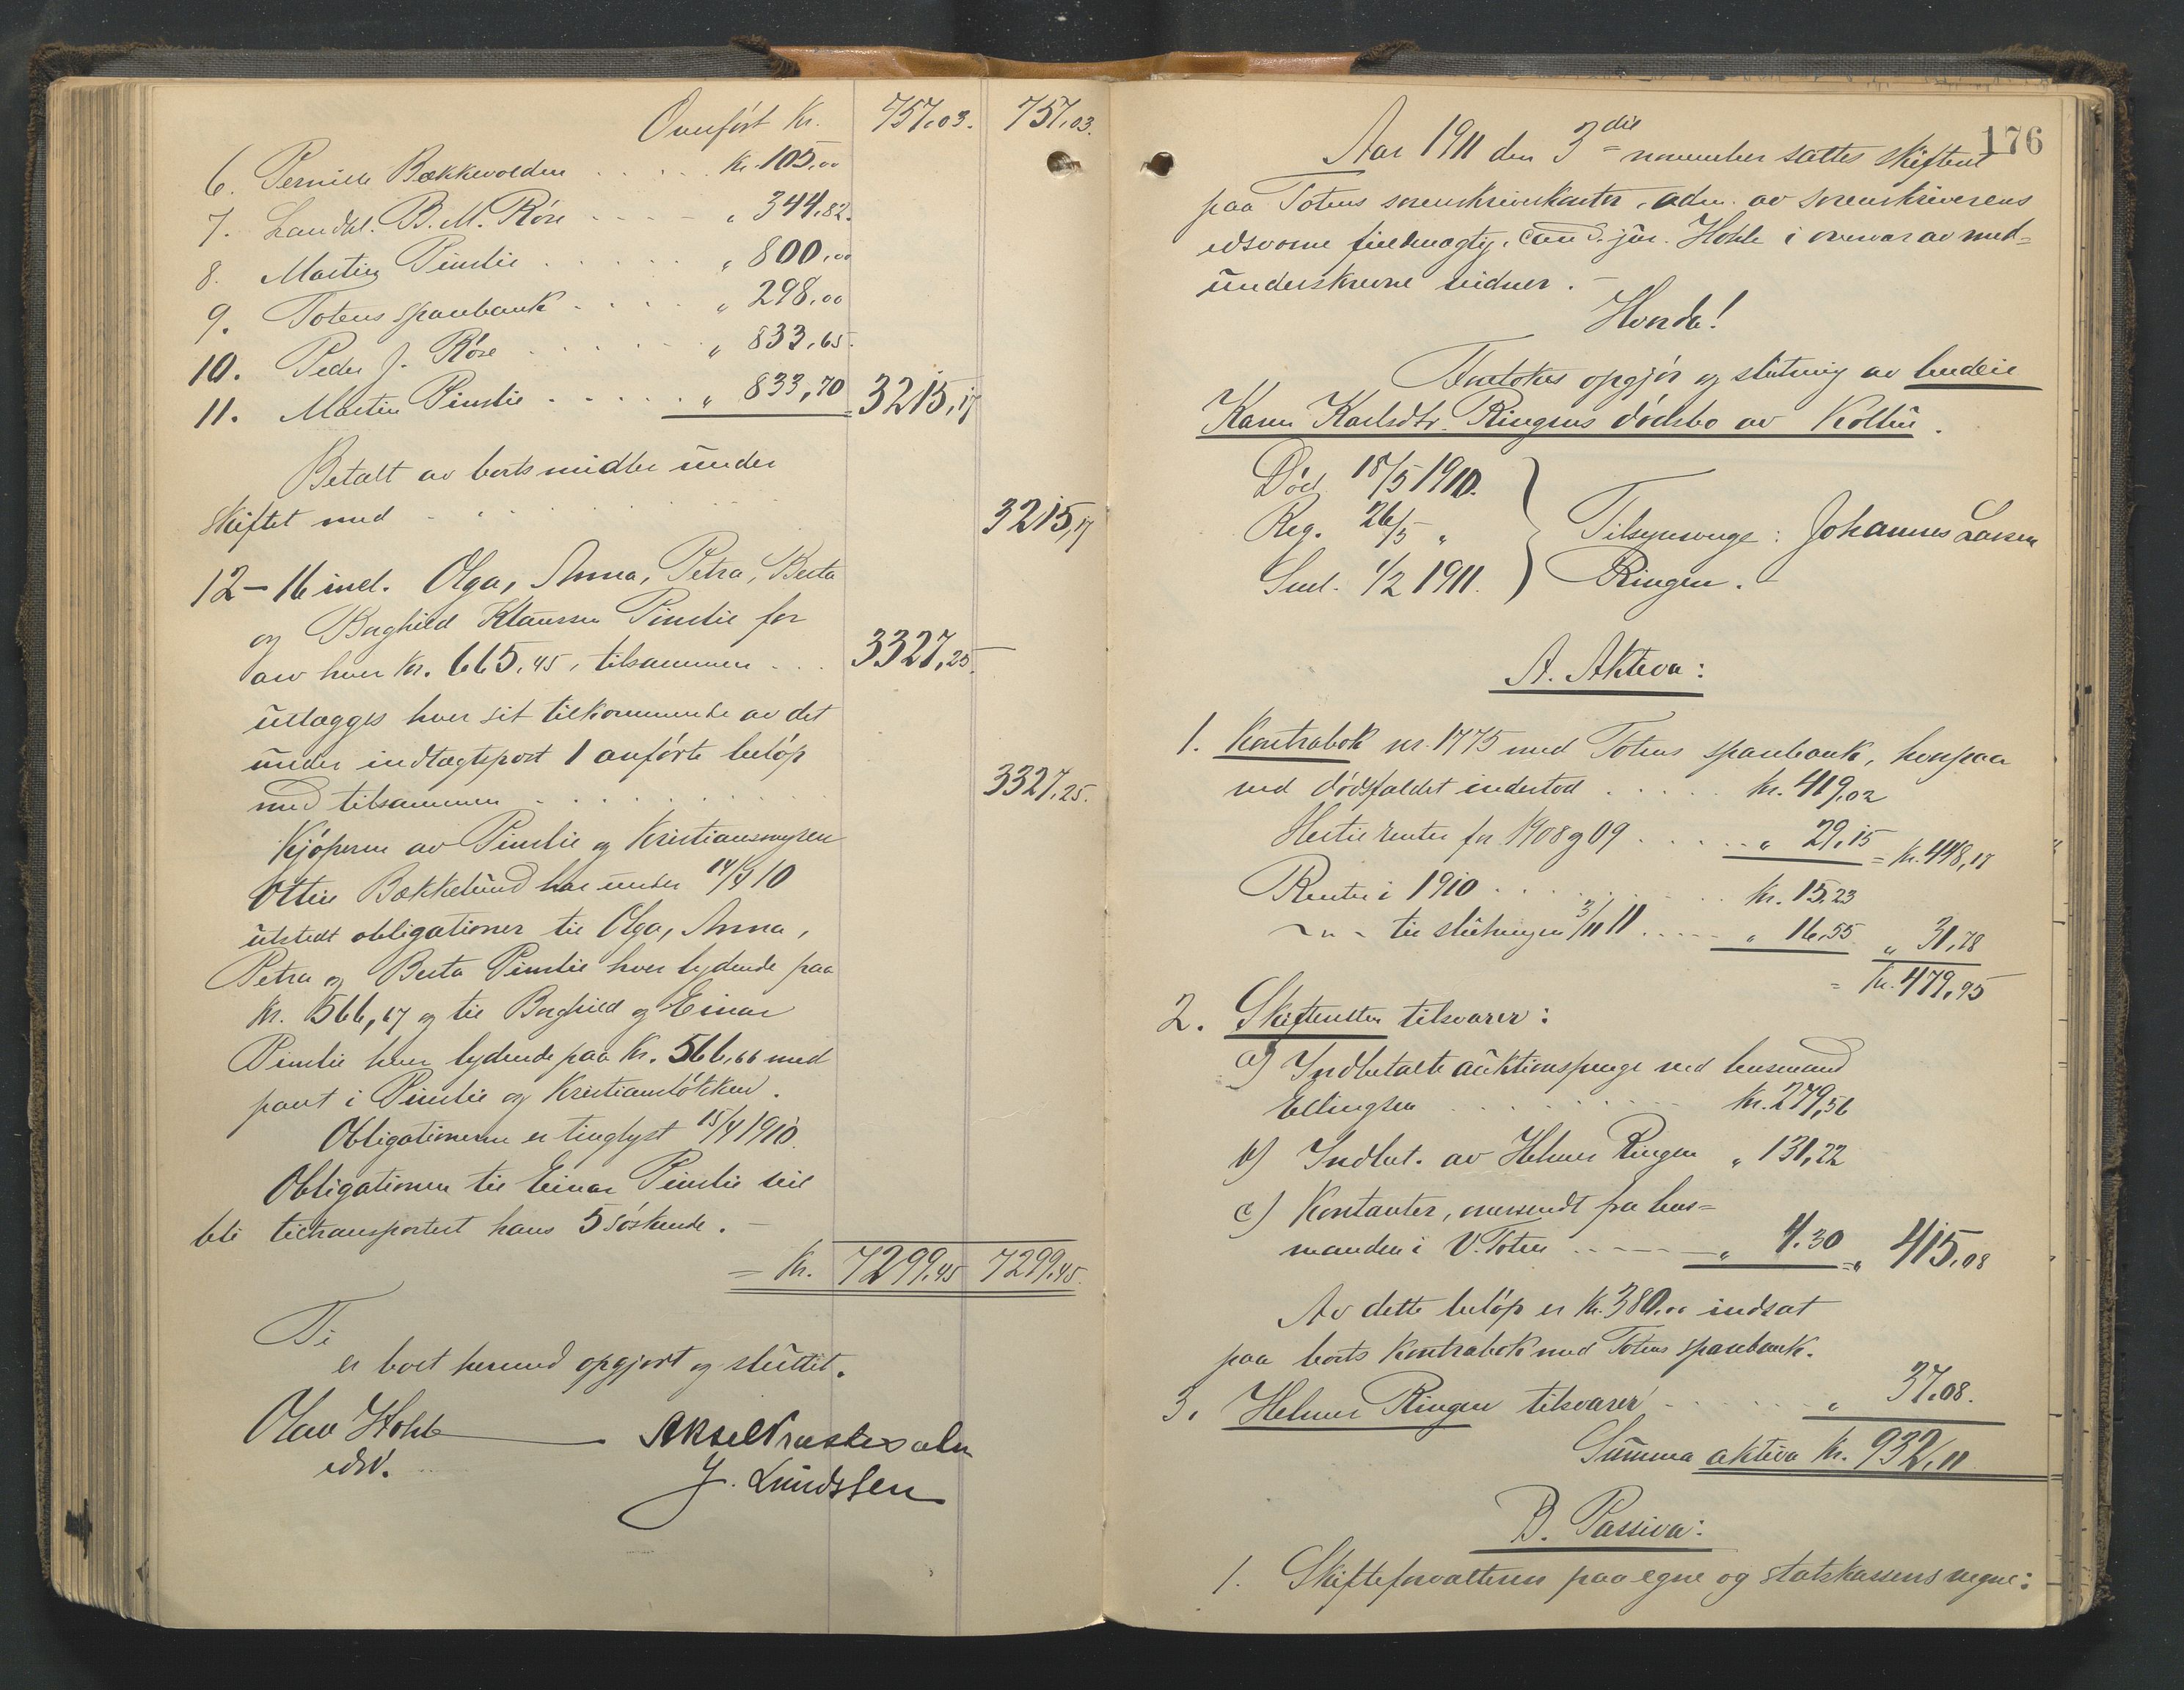 Overført Kr. 757.03. 757.03.
6. Pernille Bækkevolden . . . . . Kr. 105,00
7. Landhl. B. M. Röise . . . . „ 344.82.
8. Martin Pinslie . . . . . . „ 800.00
9. Totens sparebank . . . . „ 298,00
10. Peder J. Röse . . . . . . „ 833,65.
11. Martin Pinslie . . . . . „ 833,70 = 3215,17
Betalt av boets midler under
skiftet med . . . . . . 3215,17
12 – 16 incl. Olga, Anna, Petra, Berta
og Borghild Klaussen Pinslie for
arv hver Kr. 665,45, tilsammen . . . 3327,25.
utlægges hver sit tilkommende av det
under indtægtspost 1 anførte beløp
med tilsammen . . . . . . . 3327.25.
Kjøperen av Pinslie og Kristiansmyren
Ottin Bækkelund har under 14/4 10
utstedt obligationer til Olga, Anna,
Petra og Berta Pinslie hver lydende paa
Kr. 566,67 og til Borghild og Einar
Pinslie hver lydende paa Kr. 566,66 med
pant i Pinslie og Kristiansløkken.
Obligationerne er tinglyst 15/4 1910.
Obligationen til Einar Pinslie vil
bli titransportert hans 5 søskende. –
= Kr. 7299,45 7299,45.
Ti
er boet hermed opgjort og sluttet.
Olav Hohle Aksel
edsv. J. Lundssen
176
Aar 1911 den 3die november sattes skifteret
paa Totens sorenskriverkontor, adm. av sorenskriverens
edsvorne fuldmægtig, cand. jur. Hohle i overvær av med=
underskrevne vidner. –
Hvorda!
Foretokes opgjør og slutning av budeie
Karen Karlsdtr. Ringens dødsbo av Kolbu.
Død 18/5 1910.
Reg. 26/5 „ Tilsynsverge: Johannes Larsen
Saml. 1/2 1911. Ringen. –
A. Aktiva:
1. Kontrabok nr. 1775 med Totens sparebank, hvorpaa
ved dødsfaldet indestod . . . . . Kr. 419,02
Hertil renter for 1908 og 09 . . . . „ 29,15 = Kr. 448,17
Renter i 1910 . . . . . . . Kr. 15,23
– „ – til slutningen 3/11 11 . . . . . „ 16,55 „ 31,78
= Kr. 479,95
2. Skifteretten tilsvarer:
a) Indbetalte auktionspenge ved lensmand
Ellingsen . . . . . . . . Kr. 279,56
b) Indbet. av Helmer Ringen „ 131,22
c) Kontanter, oversendt fra lens=
manden i V. Toten . . . . . „ 4.30 = „ 415,08
Av dette beløp er Kr. 380,00 indsat
paa boets kontrabok med Totens sparebank.
3. Helmer Ringen tilsvarer . . . . . . „ 37.08.
Summa aktiva Kr. 932,11
B. Passiva:
1. Skifteforvalteren paa egne og statskassens vegne: